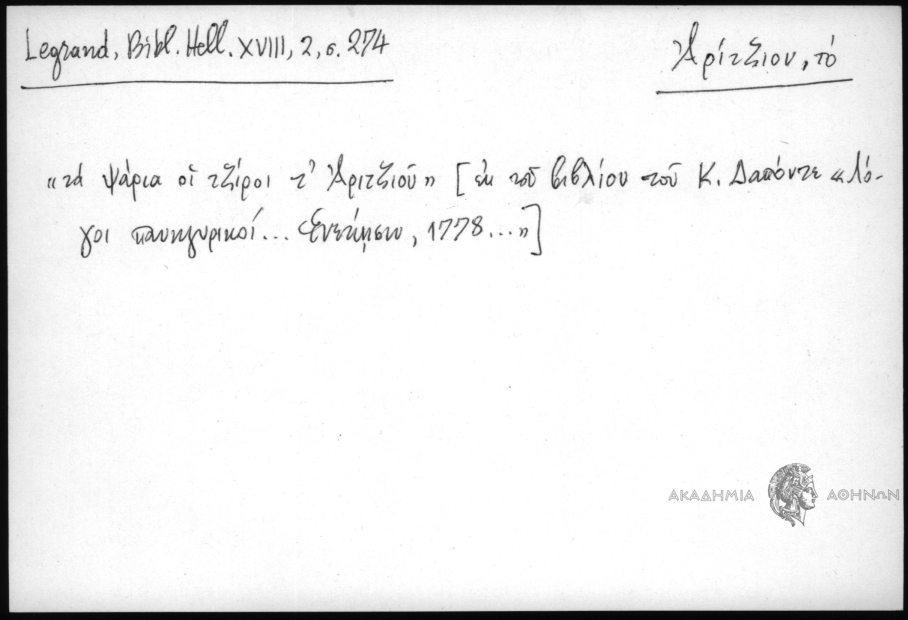 Legrand, Bibl. Hell. XVIII, 2, σ. 274
Ἀρίτζιον, τό
«τά ψάρια οἱ τζίροι τ' Ἀριτζιοῦ» [ἐκ τοῦ βιβλίου τοῦ Κ. Δαπόντε «Λό-
γοι πανηγυρικοί... Ἐνετίησιν, 1778...»]
ΑΚΑΔΗΜΙΑ ΑΘΗΝΩΝ